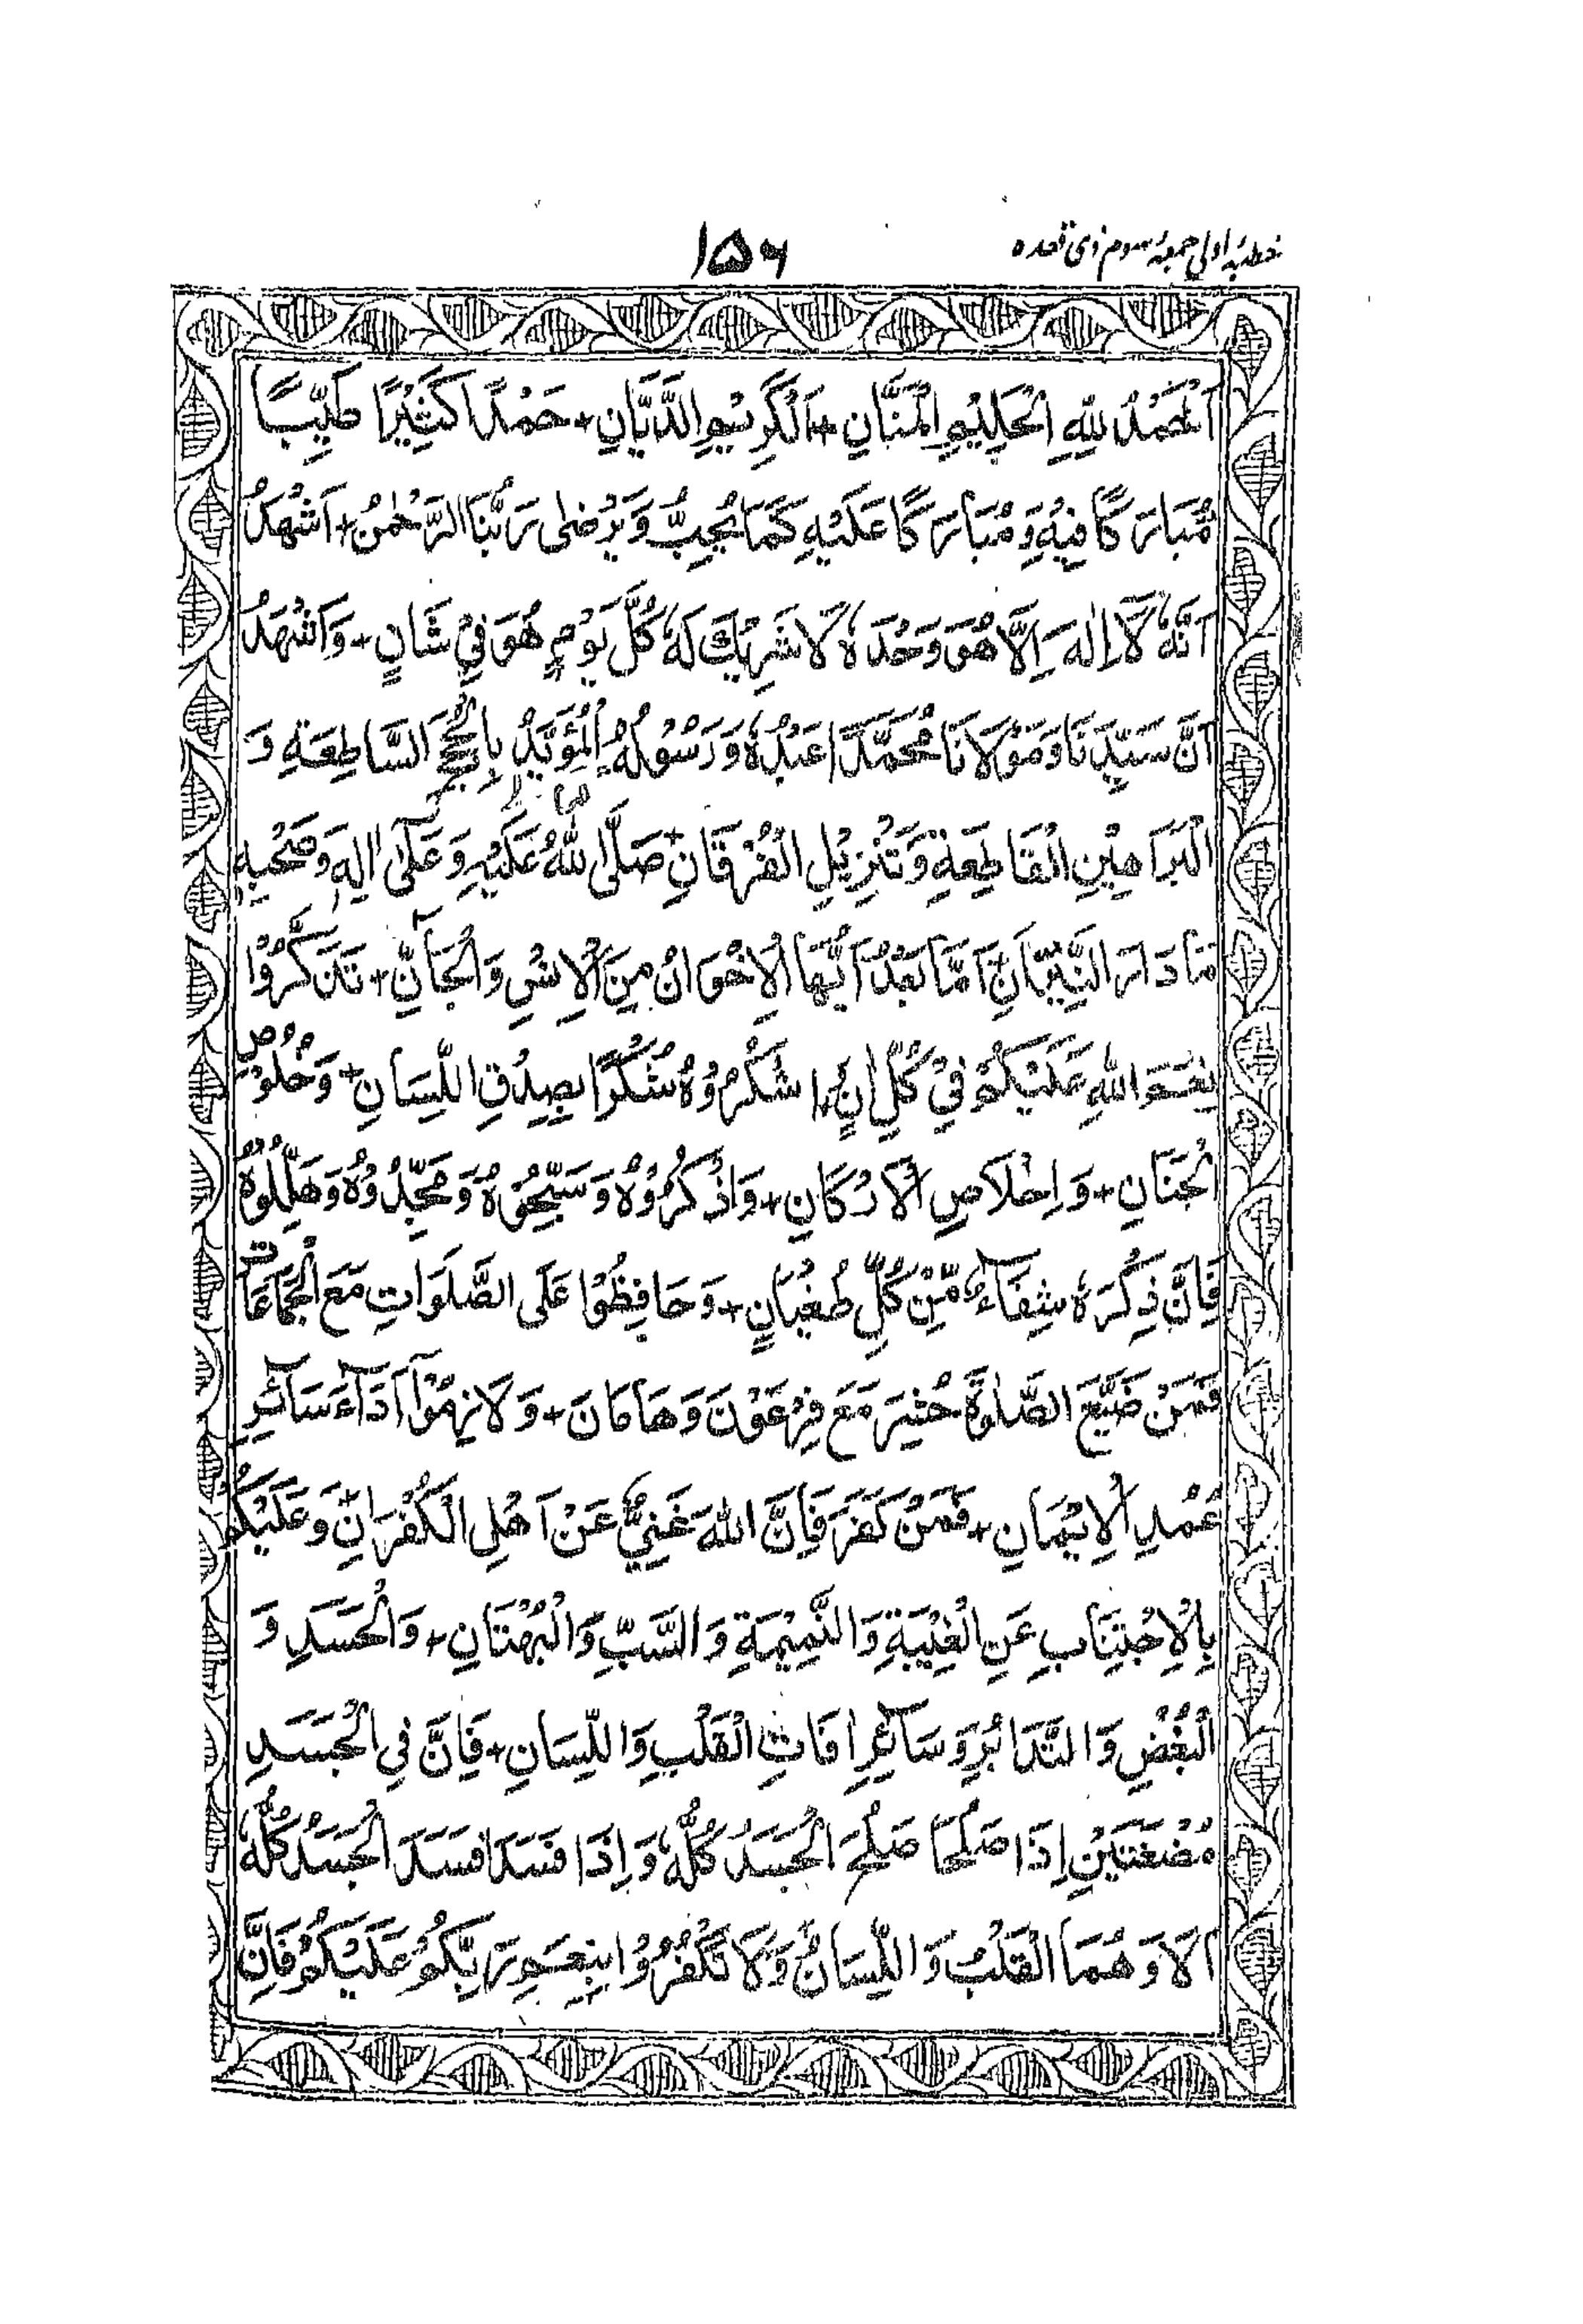 خطبۂ اولی جمعۂ سوم ذی قعدہ
۱۵۶
اَلْحَمْدُ لِلّٰهِ الْحَلِيْمِ الْمَنَّانِ + اَلْكَرِيْمِ الدَّيَّانِ + حَمْدًا كَثِيْرًا طَيِّبًا
مُّبَارَكًا فِيْهِ وَمُبَارَكًا عَلَيْهِ كَمَا يُحِبُّ وَيَرْضٰى رَبُّنَا الرَّحْمٰنُ + اَشْهَدُ
اَنَّهٗ لَآ اِلٰهَ اِلَّا هُوَ وَحْدَهٗ لَا شَرِيْكَ لَهٗ كُلَّ يَوْمٍ هُوَ فِيْ شَانٍ + وَاَشْهَدُ
اَنَّ سَيِّدَنَا وَمَوْلَانَا مُحَمَّدًا عَبْدُهٗ وَرَسُوْلُهُ الْمُؤَيَّدُ بِالْحُجَجِ السَّاطِعَةِ وَ
الْبَرَاهِيْنِ الْقَاطِعَةِ وَتَنْزِيْلِ الْفُرْقَانِ + صَلَّى اللّٰهُ عَلَيْهِ وَعَلٰٓى اٰلِهٖ وَصَحْبِهٖ
مَا دَارَ النَّيِّرَانِ + اَمَّا بَعْدُ اَيُّهَا الْاِخْوَانُ مِنَ الْاِنْسِ وَالْجَآنِّ + تَذَكَّرُوْا
نِعَمَ اللّٰهِ عَلَيْكُمْ فِيْ كُلِّ اٰنٍ + اشْكُرُوْهُ شُكْرًا بِصِدْقِ اللِّسَانِ + وَخُلُوْصِ
الْجَنَانِ + وَاِخْلَاصِ الْاَرْكَانِ + وَاذْكُرُوْهُ وَسَبِّحُوْهُ وَمَجِّدُوْهُ وَهَلِّلُوْهُ
فَاِنَّ ذِكْرَهٗ شِفَآءٌ مِّنْ كُلِّ طُغْيَانٍ + وَحَافِظُوْا عَلَى الصَّلَوَاتِ مَعَ الْجَمَاعَاتِ
فَمَنْ ضَيَّعَ الصَّلٰوةَ حُشِرَ مَعَ فِرْعَوْنَ وَهَامَانَ + وَلَازِمُوْٓا اَدَآءَ سَآئِرِ
عُمُدِ الْاِيْمَانِ + فَمَنْ كَفَرَ فَاِنَّ اللّٰهَ غَنِيٌّ عَنْ اَهْلِ الْكُفْرَانِ + وَعَلَيْكُمْ
بِالْاِجْتِنَابِ عَنِ الْغِيْبَةِ وَالنَّمِيْمَةِ وَالسَّبِّ وَالْبُهْتَانِ + وَالْحَسَدِ وَ
الْبُغْضِ وَالتَّدَابُرِ وَسَآئِرِ اٰفَاتِ الْقَلْبِ وَاللِّسَانِ + فَاِنَّ فِي الْجَسَدِ
مُضْغَتَيْنِ اِذَا صَلُحَا صَلُحَ الْجَسَدُ كُلُّهٗ وَاِذَا فَسَدَا فَسَدَ الْجَسَدُ كُلُّهٗ
اَلَا وَهُمَا الْقَلْبُ وَاللِّسَانُ + وَلَا تَكْفُرُوْا بِنِعَمِ رَبِّكُمْ عَلَيْكُمْ فَاِنَّ